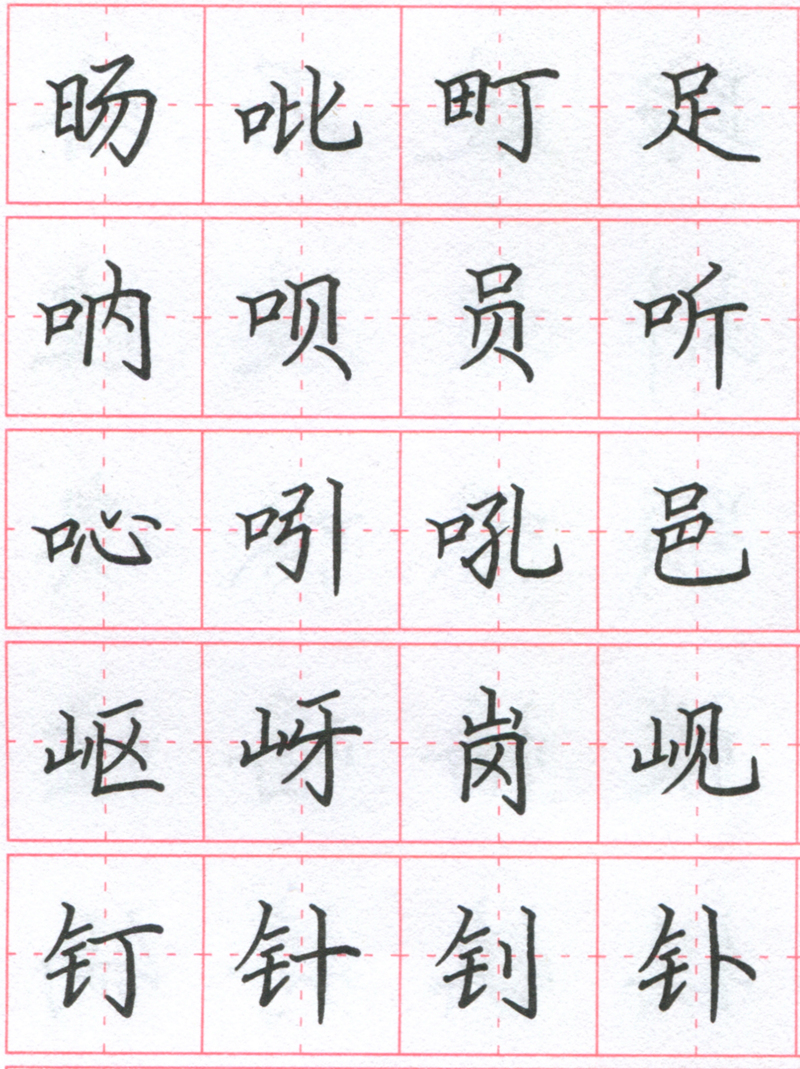 旸吡町足
呐呗员听
吣吲吼邑
岖岈岗岘
钉针钊钋